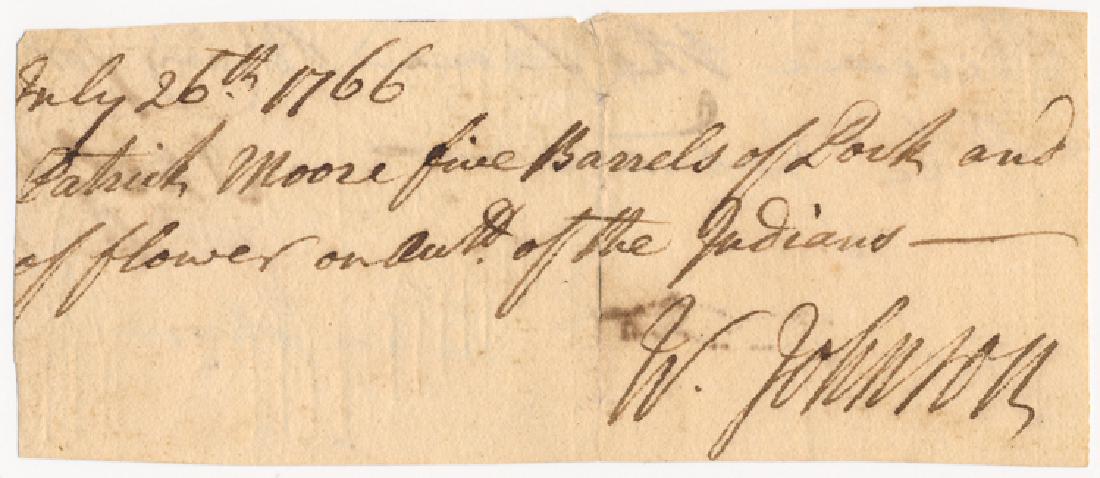 July 26th. 1766
Patrick Moore five Barrels of Pork and
of flower on Acctt. of the Indians —
W. Johnson